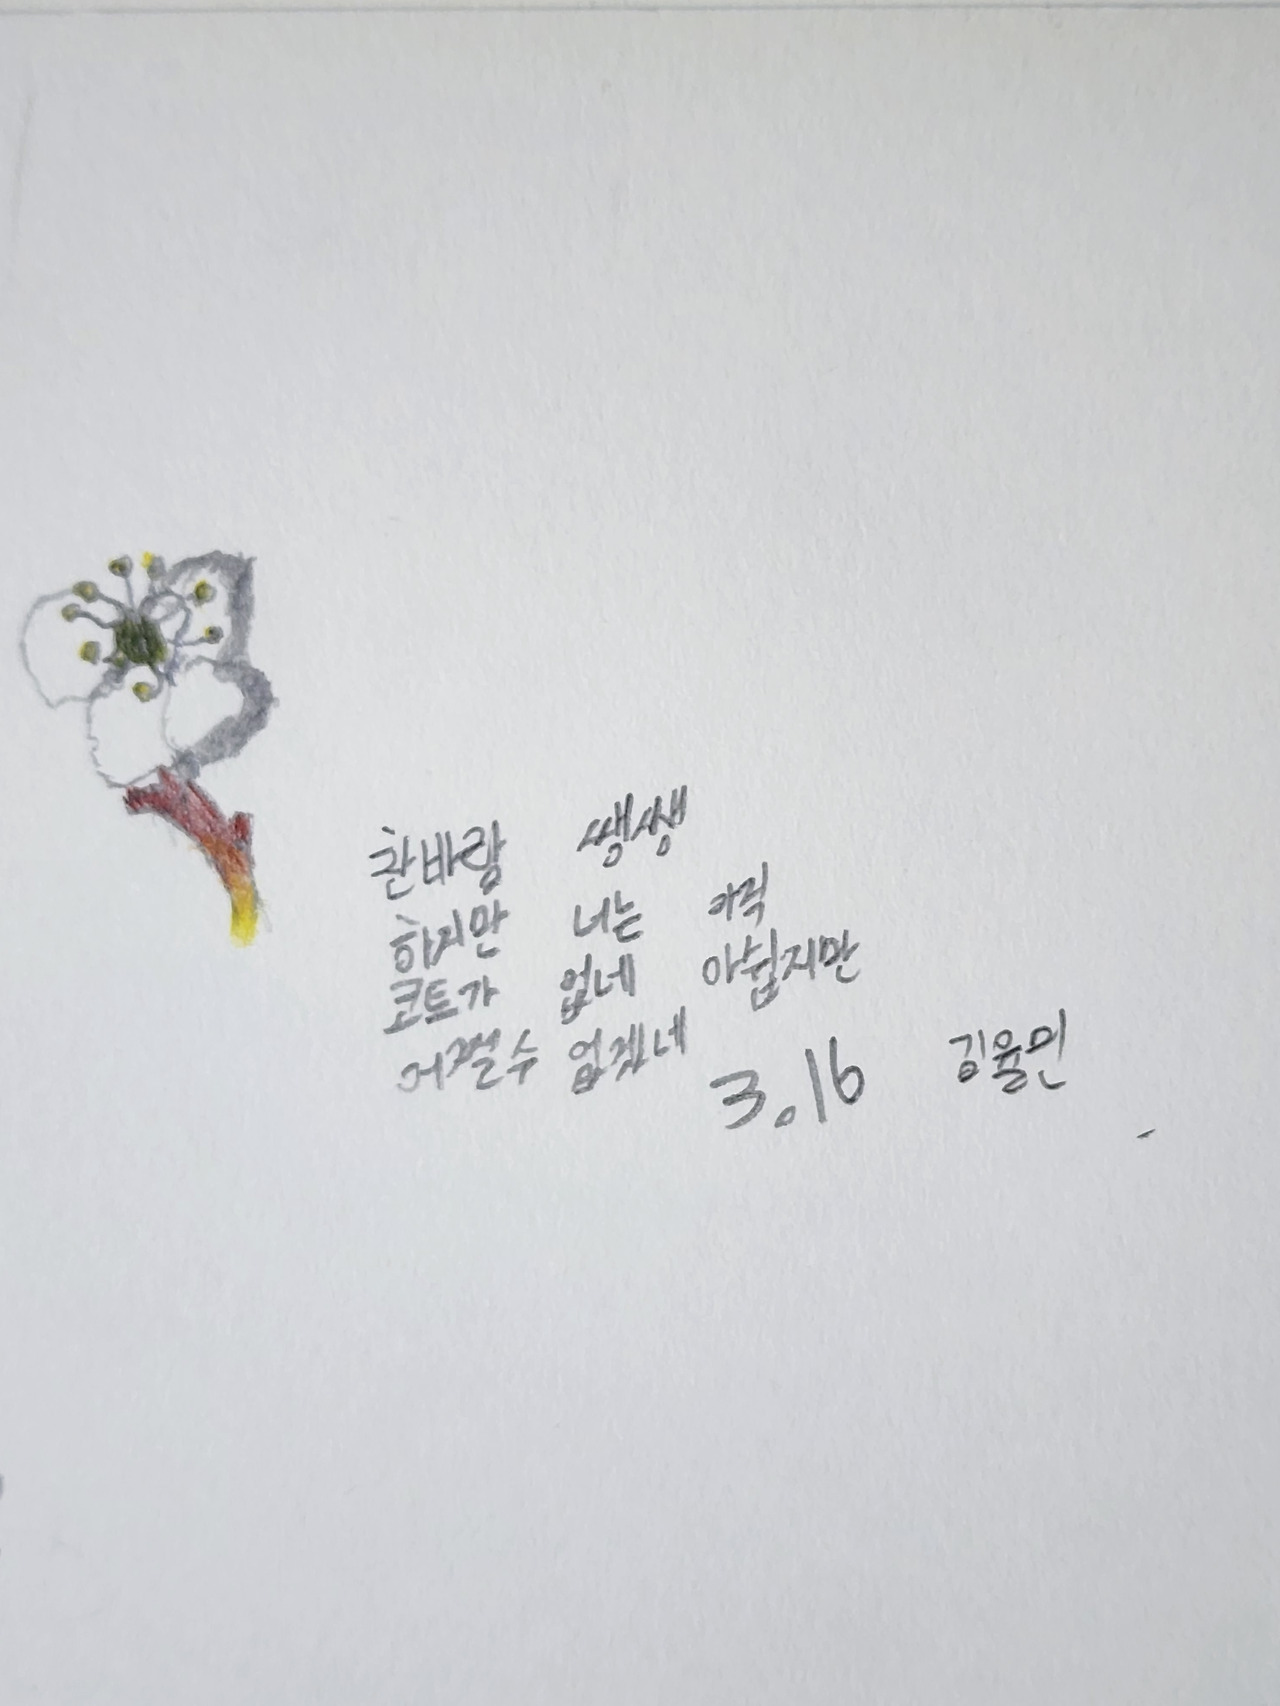 찬바람 쌩쌩
하지만 너는 아직
코트가 없네 아쉽지만
어쩔수 없겠네
3.16 김율민